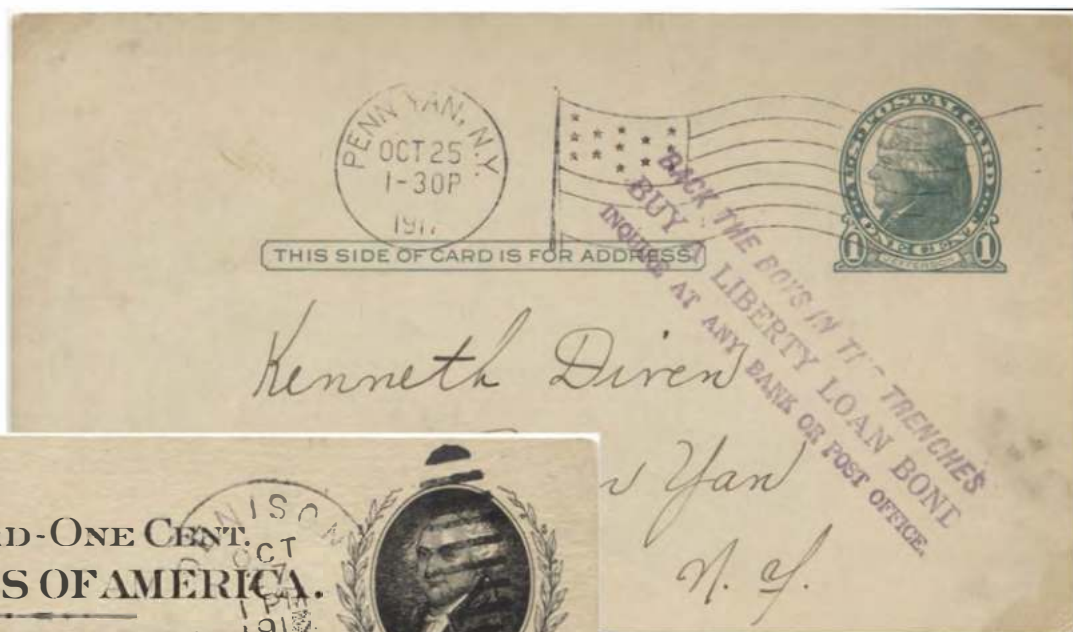 PENN YAN, N.Y.
OCT 25
1-30P
1917
U.S. POSTAL CARD
ONE CENT
1 JEFFERSON 1
THIS SIDE OF CARD IS FOR ADDRESS
BACK THE BOYS IN THE TRENCHES
BUY A LIBERTY LOAN BOND
INQUIRE AT ANY BANK OR POST OFFICE.
Kenneth Diven
Yan
N. Y.
D-ONE CENT.
S OF AMERICA.
OCT
1 PM